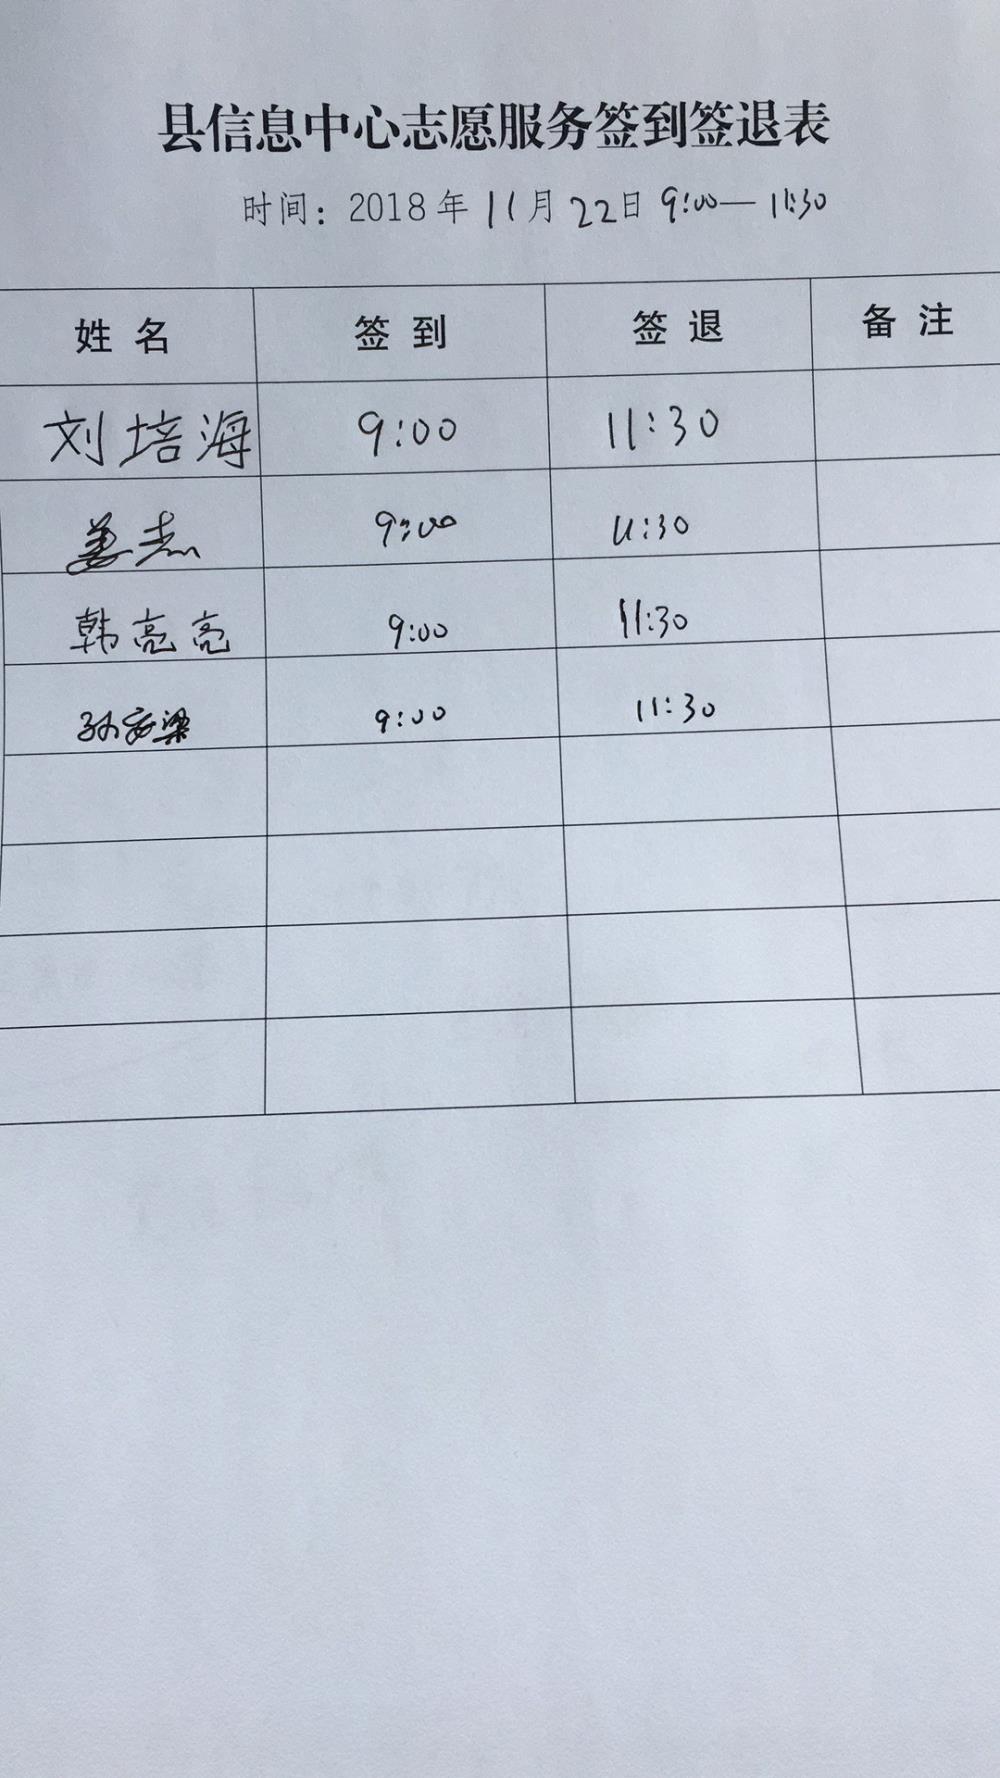 县信息中心志愿服务签到签退表
时间：2018年11月22日 9:00—11:30
姓名 签到 签退 备注
刘培海 9:00 11:30
姜杰 9:00 11:30
韩亮亮 9:00 11:30
孙 梁 9:00 11:30